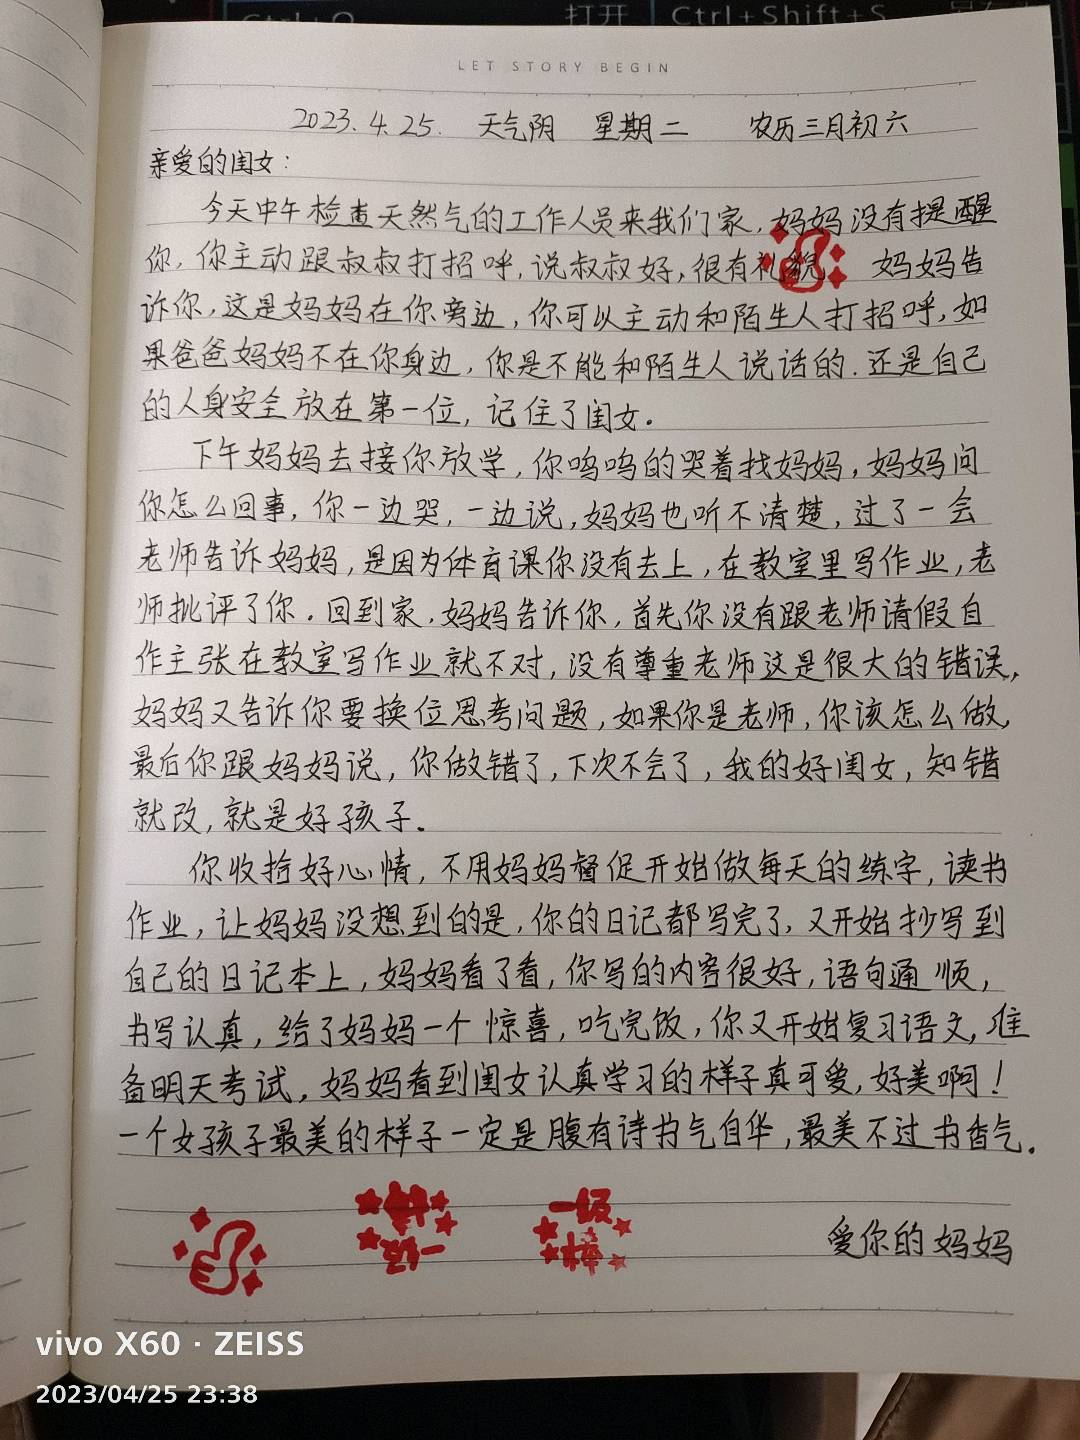 打开 Ctrl+Shift+S
LET STORY BEGIN
2023.4.25. 天气阴 星期二 农历三月初六
亲爱的闺女：
今天中午检查天然气的工作人员来我们家,妈妈没有提醒
你,你主动跟叔叔打招呼,说叔叔好,很有礼貌 妈妈告
诉你,这是妈妈在你旁边,你可以主动和陌生人打招呼,如
果爸爸妈妈不在你身边,你是不能和陌生人说话的.还是自己
的人身安全放在第一位,记住了闺女。
下午妈妈去接你放学,你呜呜的哭着找妈妈,妈妈问
你怎么回事,你一边哭,一边说,妈妈也听不清楚,过了一会
老师告诉妈妈,是因为体育课你没有去上,在教室里写作业,老
师批评了你.回到家,妈妈告诉你,首先你没有跟老师请假自
作主张在教室写作业就不对,没有尊重老师这是很大的错误,
妈妈又告诉你要换位思考问题,如果你是老师,你该怎么做,
最后你跟妈妈说,你做错了,下次不会了,我的好闺女,知错
就改,就是好孩子。
你收拾好心情,不用妈妈督促开始做每天的练字,读书
作业,让妈妈没想到的是,你的日记都写完了,又开始抄写到
自己的日记本上,妈妈看了看,你写的内容很好,语句通顺,
书写认真,给了妈妈一个惊喜,吃完饭,你又开始复习语文,准
备明天考试,妈妈看到闺女认真学习的样子真可爱,好美啊!
一个女孩子最美的样子一定是腹有诗书气自华,最美不过书香气.
一级棒
一级棒
爱你的妈妈
vivo X60 · ZEISS
2023/04/25 23:38